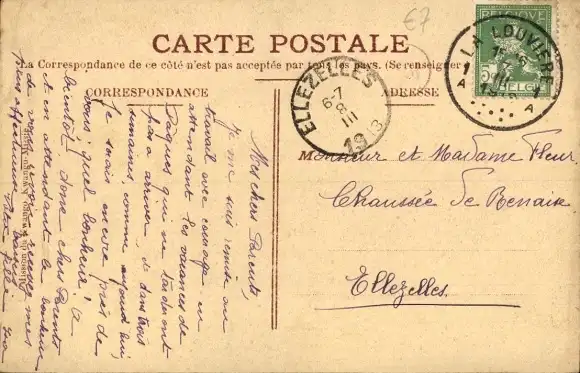 €7
CARTE POSTALE
La Correspondance de ce côté n'est pas acceptée par tous les pays. (Se renseigner
CORRESPONDANCE
ADRESSE
BELGIQUE
LA LOUVIÈRE
A A
ELLEZELLES
6-7
8
III
1913
Monsieur et Madame Fleur
Chaussée de Renaix
Ellezelles.
Mes chers Parents,
Je me suis remise au
travail avec courage en
attendant les vacances de
Pâques qui ne tarderont
pas à arriver, et dans trois
semaines, comme aujourd'hui,
je serais encore près de
vous; quel bonheur! à
bientôt donc chers Parents
et en attendant le bonheur
de vous recevez mes
plus affectueux
Votre fille